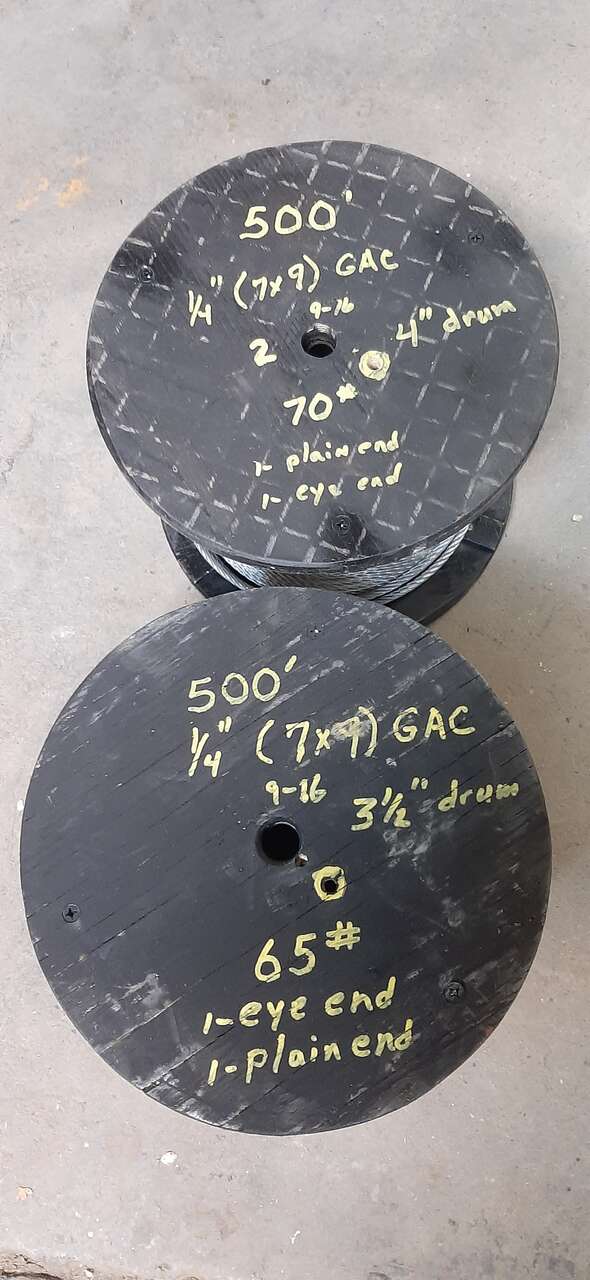 500'
1/4" (7x9) GAC
9-16
2
4" drum
70#
1- plain end
1- eye end
500'
1/4" (7x9) GAC
9-16
3 1/2" drum
65#
1-eye end
1-plain end